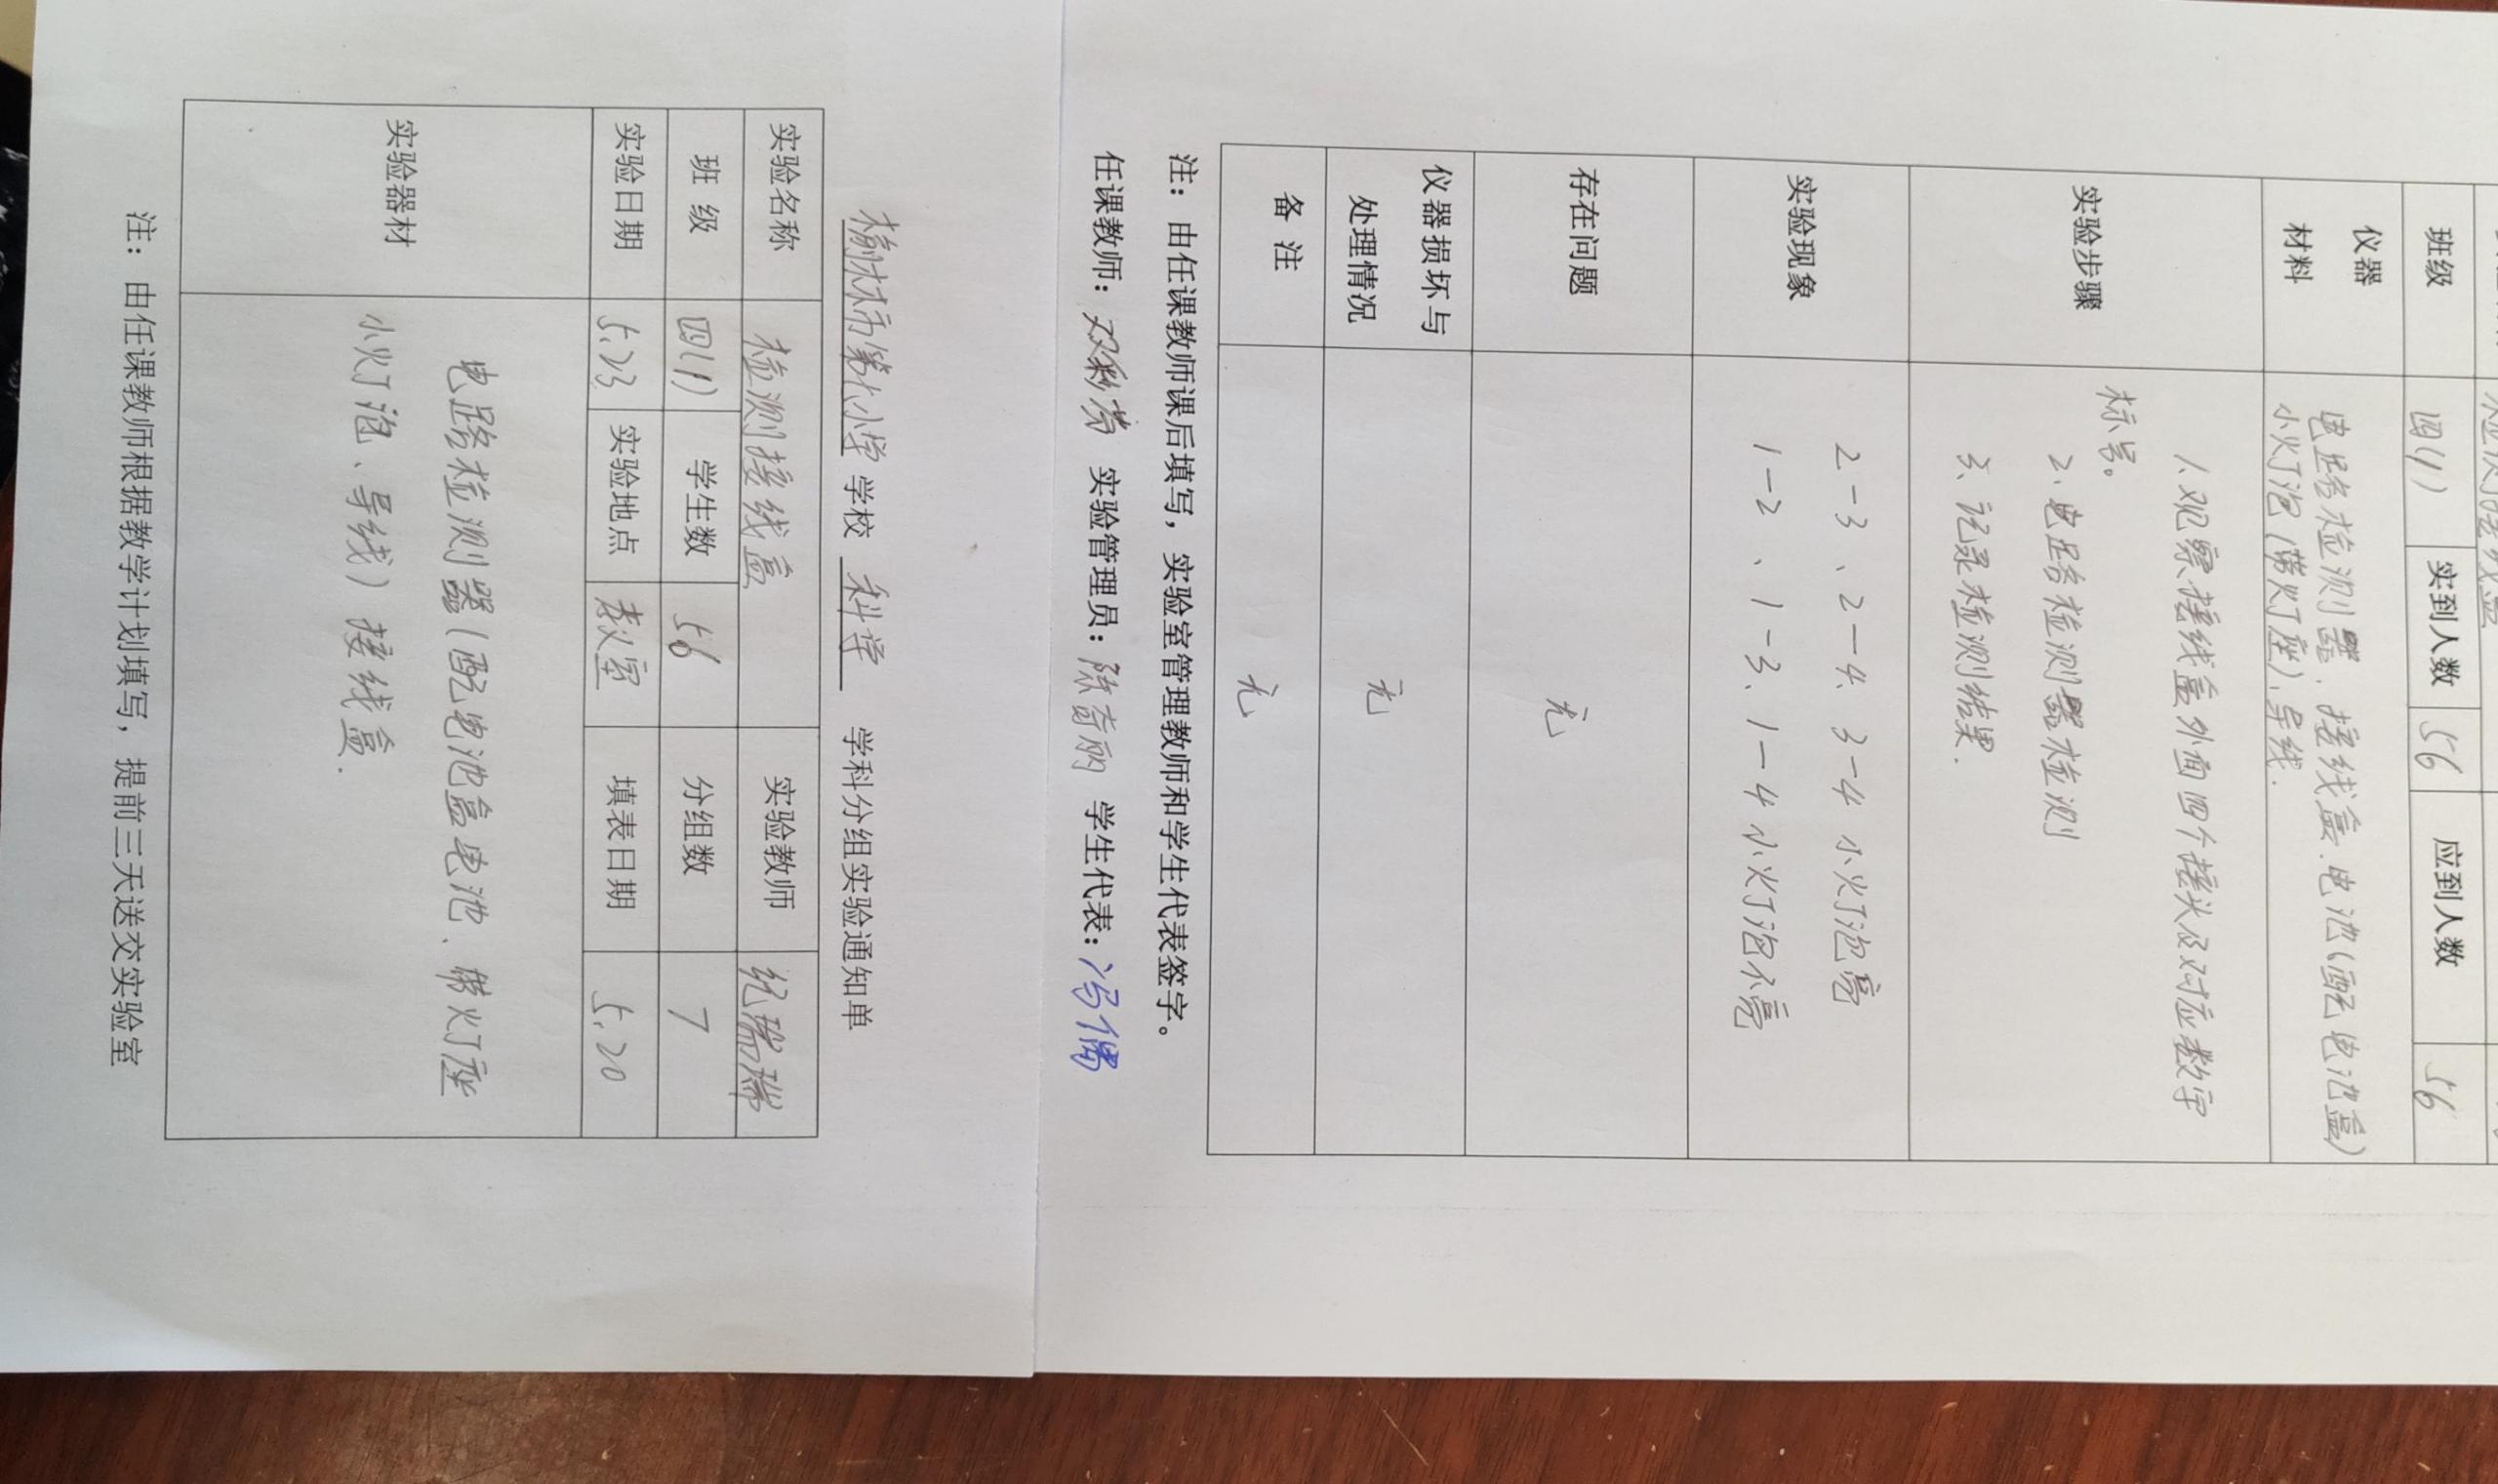 班级 四(1) 实到人数 56 应到人数 56
仪器材料 电路检测器、接线盒、电池(配电池盒)
小火灯泡(带火灯座)、导线.
实验步骤
1、观察接线盒外面四个接头及对应数字
标号。
2、电路检测器检测
3、记录检测结果.
实验现象
2-3、2-4、3-4 小火灯泡亮
1-2、1-3、1-4 小火灯泡不亮
存在问题 无
仪器损坏与处理情况 无
备 注 无
注：由任课教师课后填写，实验室管理教师和学生代表签字。
任课教师： 实验管理员： 学生代表：冯儒
榆林市第 小学 学校 科学 学科分组实验通知单
实验名称 检测接线盒 实验教师 纪瑞瑞
班 级 四(1) 学生数 56 分组数 7
实验日期 5.23 实验地点 教室 填表日期 5.20
实验器材
电路检测器(配电池盒电池、带火灯座
小火灯泡、导线) 接线盒.
注： 由任课教师根据教学计划填写，提前三天送交实验室